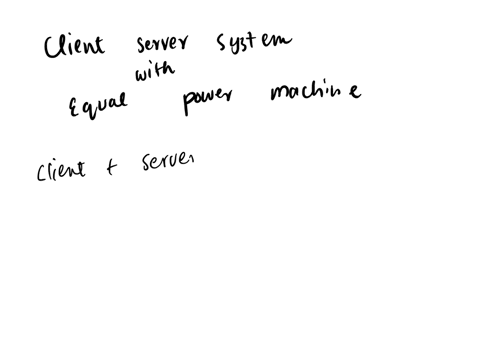 Client server system
with
Equal power machine
client + server